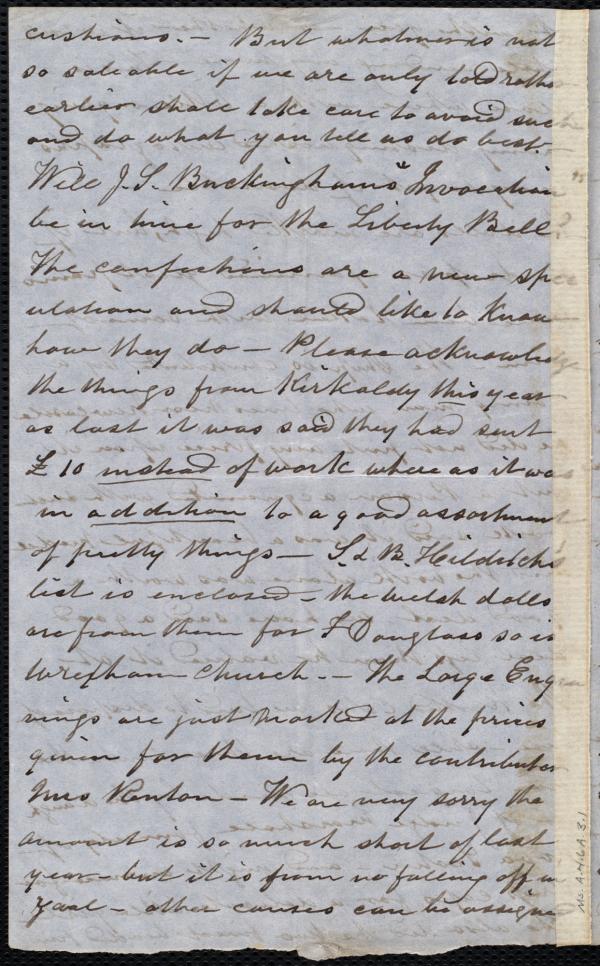 cushions. — But whatever is not
so saleable if we are only told rather
earlier shall take care to avoid such
and do what you tell us do best. —
Will J. S. Buckingham's Invocation
be in time for the Liberty Bell?
The confections are a new spec
ulation and should like to know
how they do — Please acknowledge
the things from Kirkaldy this year
as last it was said they had sent
£10 instead of work where as it was
in addition to a good assortment
of pretty things — S. & B. Hilditch's
list is enclosed — the welsh dolls
are from them for F Douglass so is
Wrexham Church. — The Large Engra
vings are just marked at the prices
given for them by the contributor
Mrs Renton — We are very sorry the
amount is so much short of last
year — but it is from no falling off in
zeal — other causes can be assigned
Ms. A.4.6A.3.1